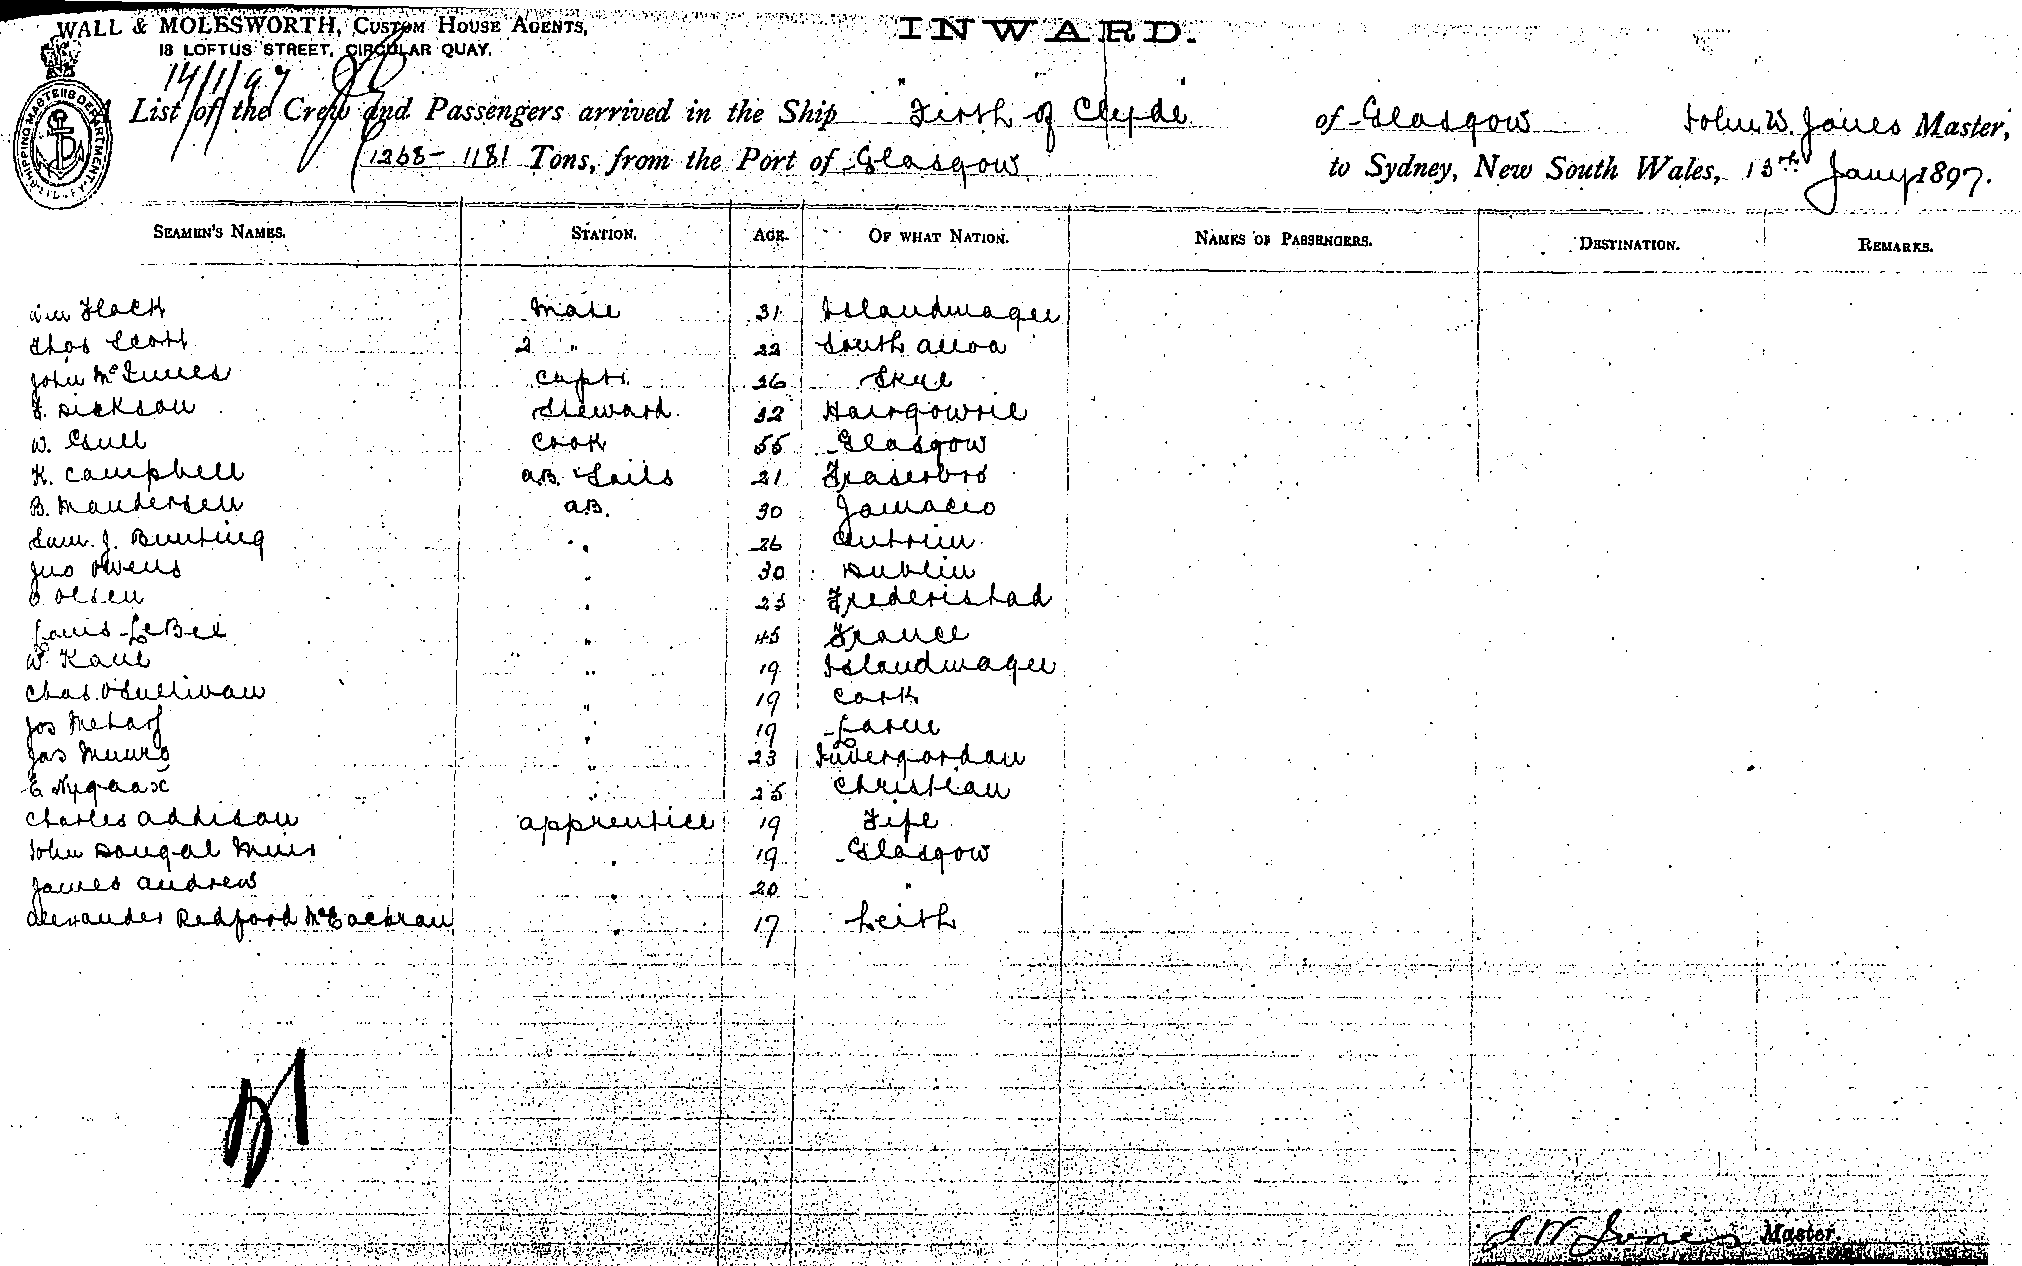 WALL & MOLESWORTH, CUSTOM HOUSE AGENTS,
18 LOFTUS STREET, CIRCULAR QUAY.
INWARD.
14/1/97
SHIPPING MASTERS DEPARTMENT
List of the Crew and Passengers arrived in the Ship "Firth of Clyde" of Glasgow John W. Jones Master,
1268 - 1181 Tons, from the Port of Glasgow to Sydney, New South Wales, 13th Jany 1897.
SEAMEN'S NAMES. STATION. AGE. OF WHAT NATION. NAMES OF PASSENGERS. DESTINATION. REMARKS.
Wm Flack Mate 31 Islandmagee
Thos Scott 2 " 22 South Alloa
John McInnes Captr 26 Skye
Dickson Steward 32 Blairgowrie
W. Gull Cook 55 Glasgow
K. Campbell AB & Sails 21 Fraserbro
B. Mandersen AB. 30 Jamacio
Sam. J. Bunting " 26 Antrim
Jno Owens " 30 Dublin
O Olsen " 25 Frederistad
Louis LeBex " 45 France
W. Kane " 19 Islandmagee
Chas. O'Sullivan " 19 Cork
Jos Metarf " 19 Larne
Jas Munro " 23 Invergordan
E Nygaax " 25 Christian
Charles Addison apprentice 19 Fife
John Dougal Muir " 19 Glasgow
James Andrew " 20 "
Alexander Redford McEachran " 17 Leith
J W Jones Master.